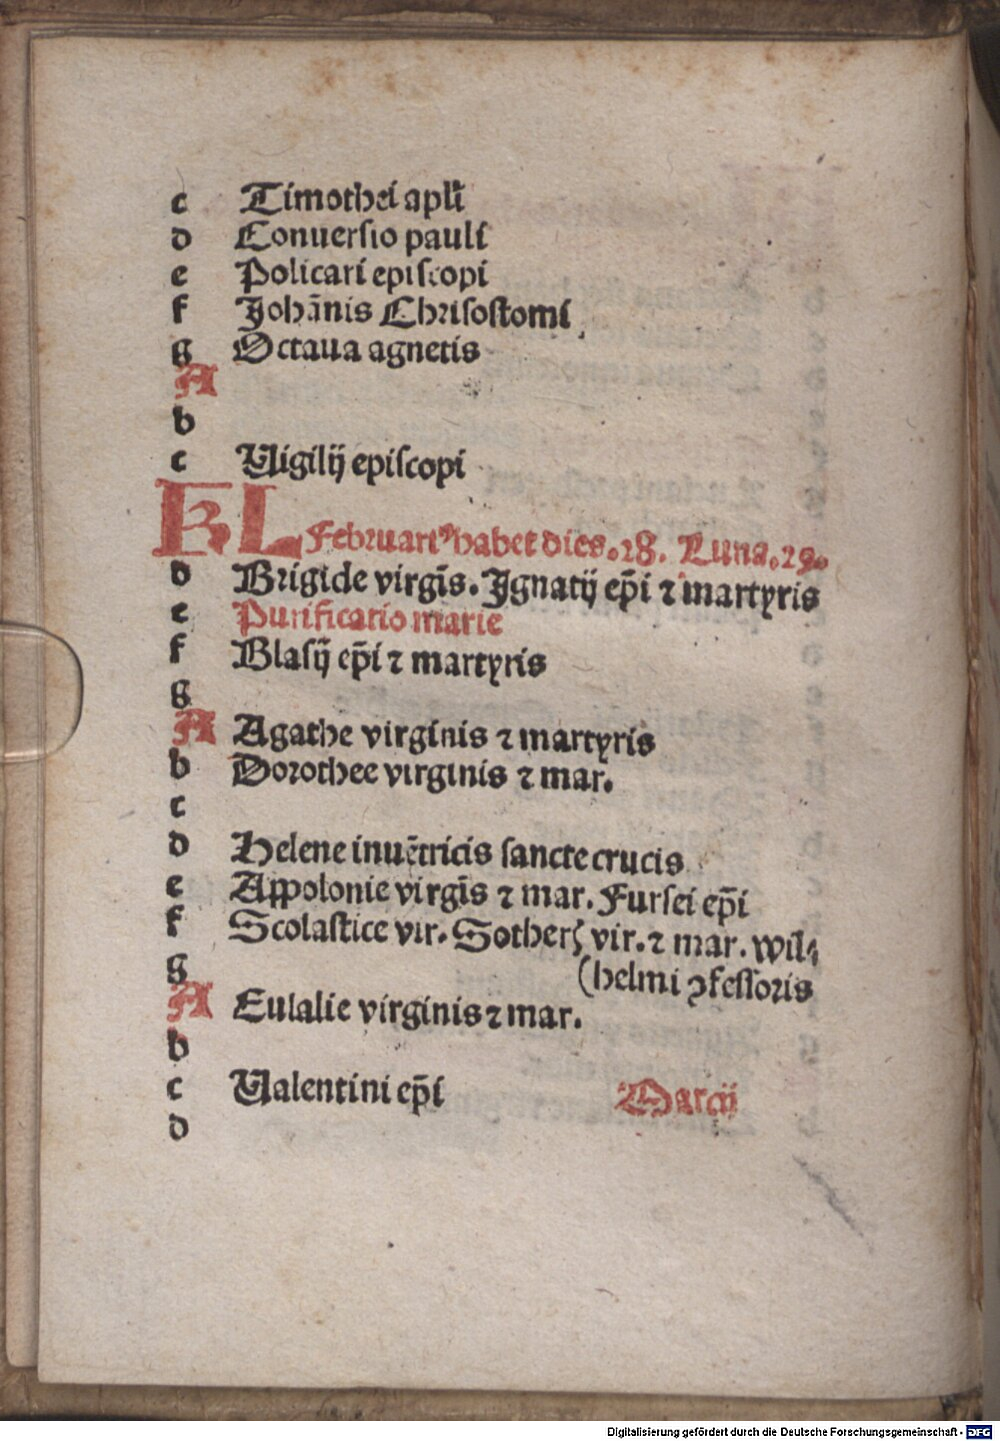 c Timothei apl̃i
d Conuersio pauli
e Policari episcopi
f Johānis Chrisostomi
g Octaua agnetis
A
b
c Uigilij episcopi
KL Februariꝰ habet dies.28. Luna.29.
d Brigide virgīs. Ignatij ep̄i ⁊ martyris
e Purificatio marie
f Blasij ep̄i ⁊ martyris
g
A Agathe virginis ⁊ martyris
b Dorothee virginis ⁊ mar.
c
d Helene inuētricis sancte crucis
e Appolonie virgīs ⁊ mar. Fursei ep̄i
f Scolastice vir. Sotherꝭ vir. ⁊ mar. wil⸗
g (helmi ꝯfessoris
A Eulalie virginis ⁊ mar.
b
c Ualentini ep̄i Marcij
d
Digitalisierung gefördert durch die Deutsche Forschungsgemeinschaft - DFG